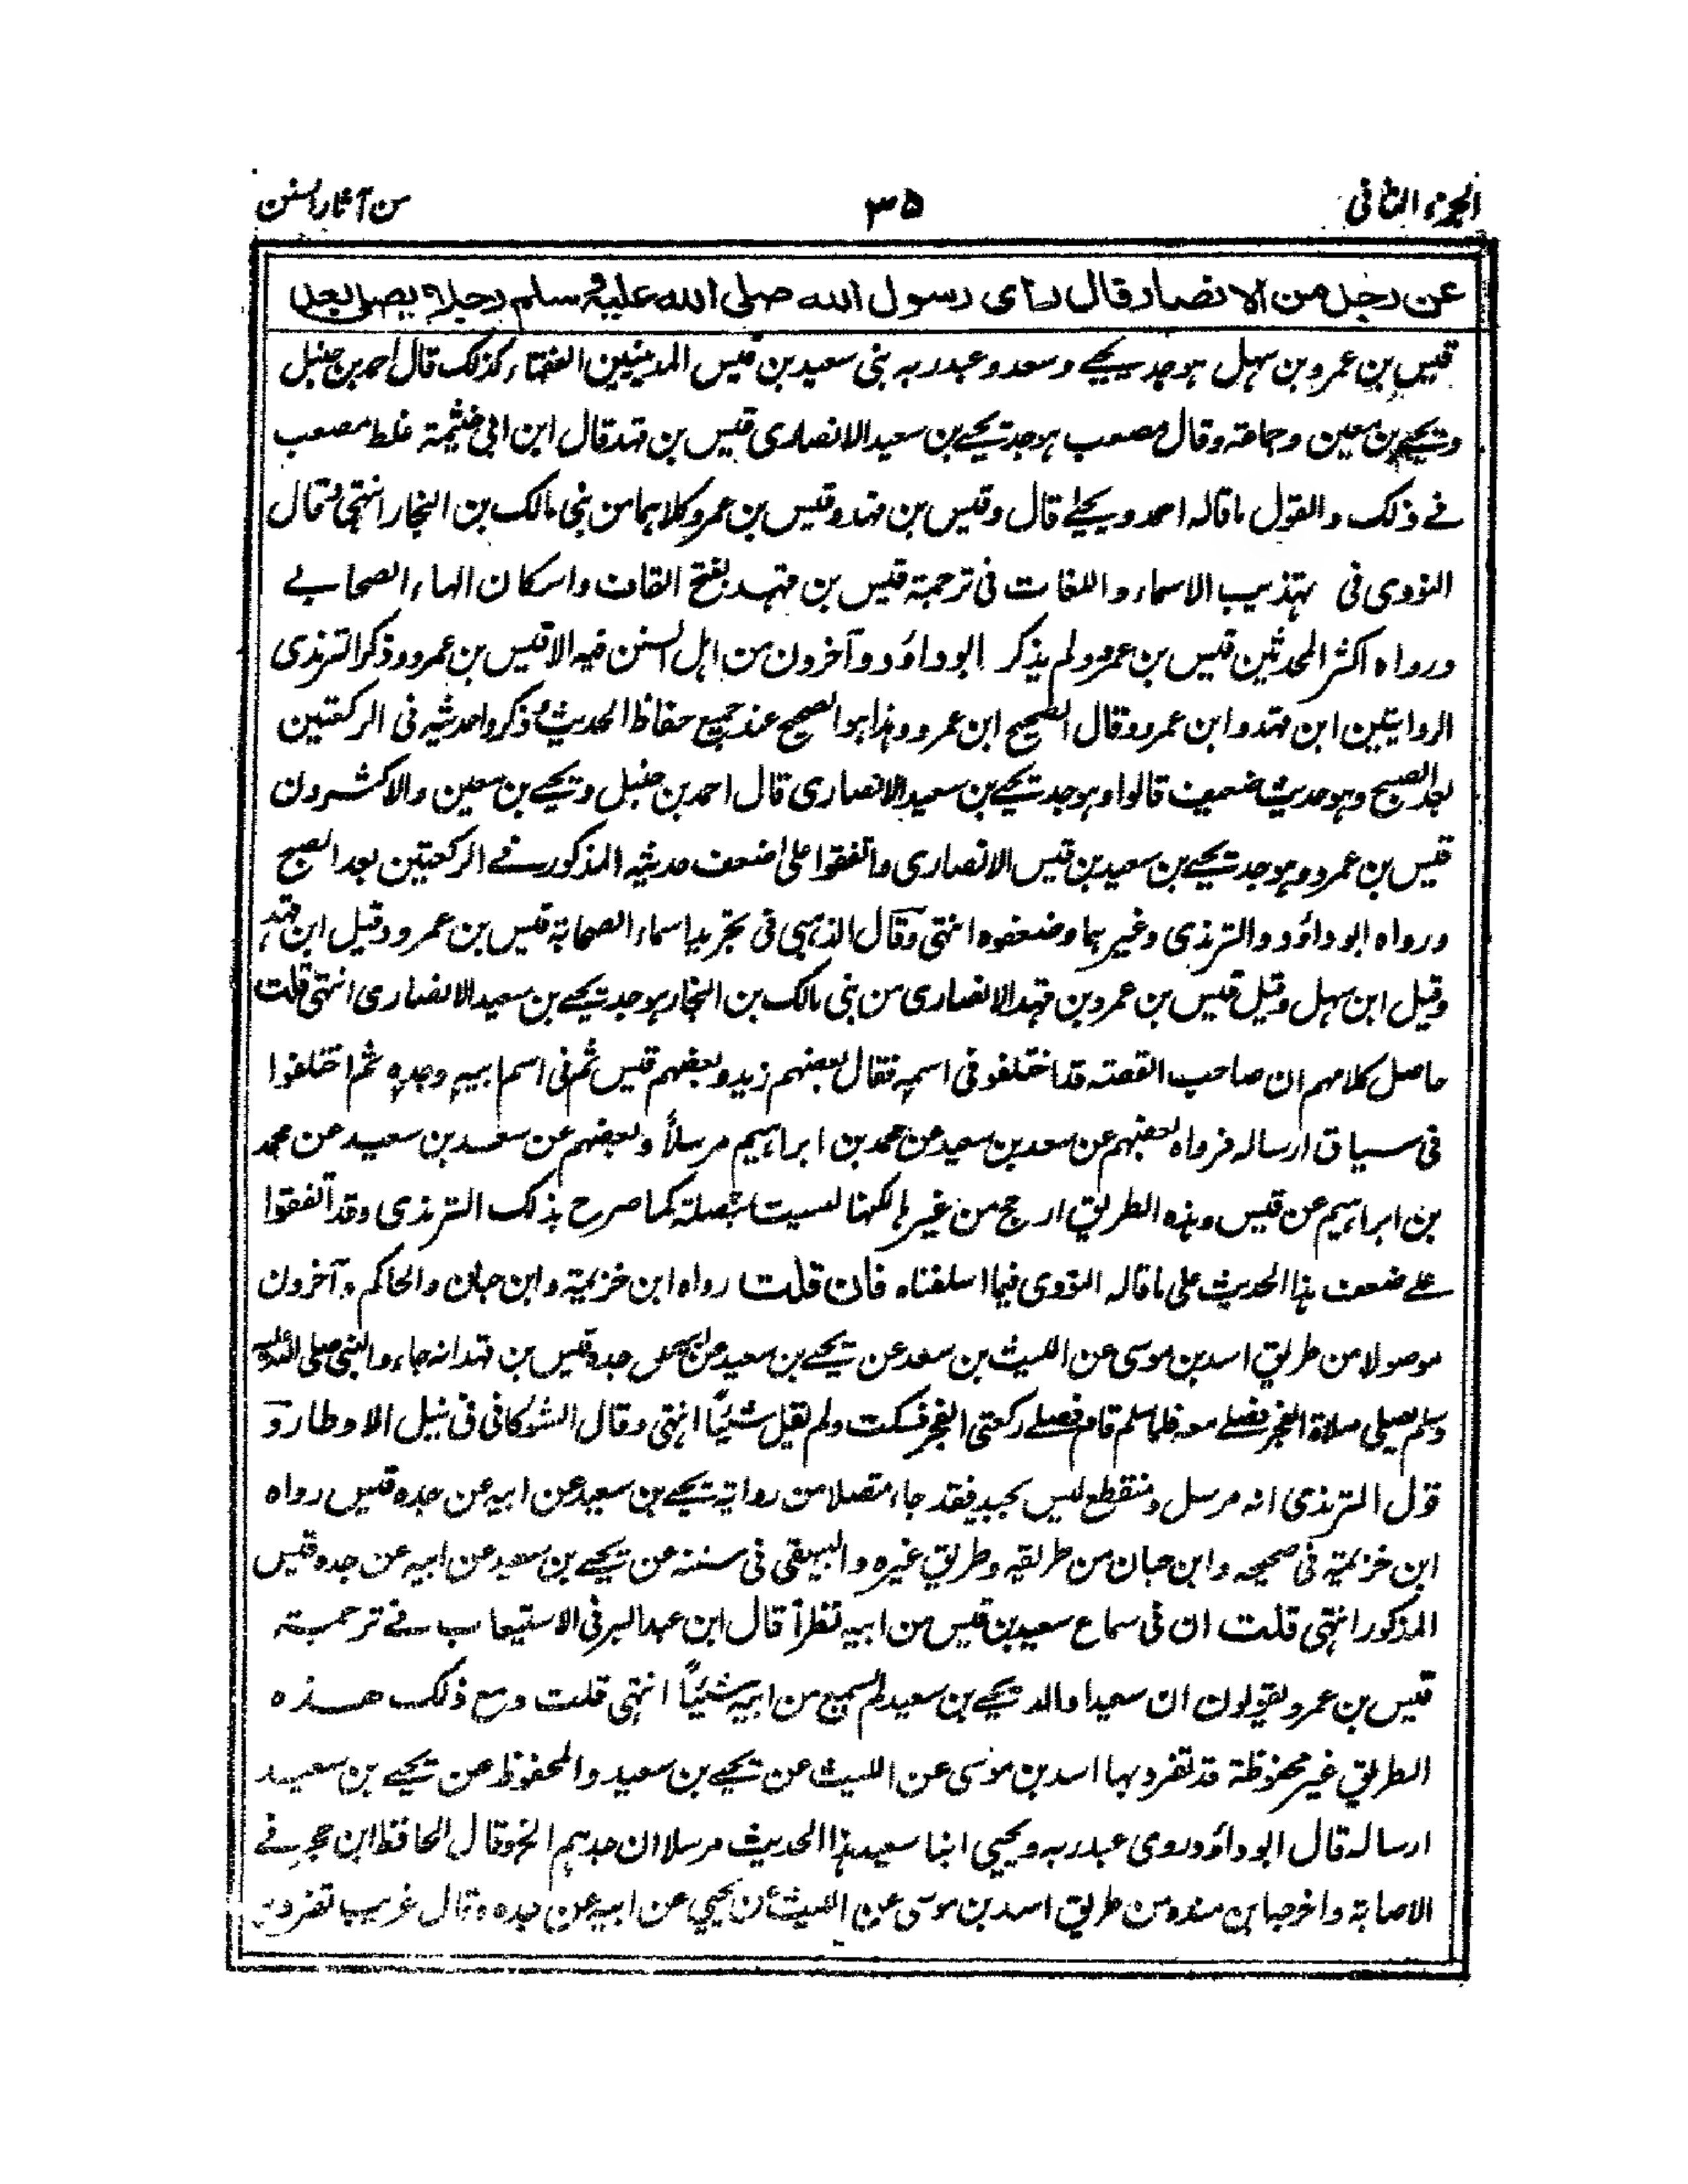 الجزء الثانی ۳۵ من آثار السنن
عن رجل من الانصار قال رأی رسول الله صلی الله علیه وسلم رجلا یصلی بعد
قیس بن عمرو بن سہل ہو جد یحیے وسعد وعبد ربہ بنی سعید بن قیس المدینیین الفقہاء کذلک قال احمد بن حنبل
ویحیے بن معین وجماعۃ وقال مصعب ہو جد یحیے بن سعید الانصاری قیس بن قہد قال ابن ابی خثیمۃ غلط مصعب
فے ذلک والقول ما قالہ احمد ویحیٰے قال وقیس بن قہد وقیس بن عمرو کلاہما من بنی مالک بن النجار انتہی وقال
النووی فی تہذیب الاسماء واللغات فی ترجمۃ قیس بن قہد بفتح القاف واسکان الہاء الصحابے
ورواہ اکثر المحدثین قیس بن عمرو ولم یذکر ابو داؤد وآخرون من اہل السنن فیہ الا قیس بن عمرو وذکر الترمذی
الروایتین ابن قہد وابن عمرو وقال الصحیح ابن عمرو وہذا ہو الصحیح عند جمیع حفاظ الحدیث وذکروا حدیثہ فی الرکعتین
بعد الصبح وہو حدیث ضعیف قالوا وہو جد یحیے بن سعید الانصاری قال احمد بن حنبل ویحیے بن معین والاکثرون
قیس بن عمرو وہو جد یحیے بن سعید بن قیس الانصاری واتفقوا علی ضعف حدیثہ المذکور فے الرکعتین بعد الصبح
ورواہ ابو داؤد والترمذی وغیرہما وضعفوہ انتہی وقال الذہبی فی تجرید اسماء الصحابۃ قیس بن عمرو وقیل ابن قہد
وقیل ابن سہل وقیل قیس بن عمرو بن قہد الانصاری من بنی مالک بن النجار ہو جد یحیے بن سعید الانصاری انتہی قلت
حاصل کلامہم ان صاحب القصۃ قد اختلفو فی اسمہ فقال بعضہم زید وبعضہم قیس ثم فی اسم ابیہ وجدہ ثم اختلفوا
فی سیاق ارسالہ فرواہ بعضہم عن سعد بن سعید عن محمد بن ابراہیم مرسلاً وبعضہم عن سعد بن سعید عن محمد
بن ابراہیم عن قیس وہذہ الطریق ارجح من غیرہا لکنہا لیست بمتصلۃ کما صرح بذلک الترمذی وقد اتفقوا
علے ضعف ہذا الحدیث علی ما قالہ النووی فیما اسلفناہ فان قلت رواہ ابن خزیمۃ وابن حبان والحاکم وآخرون
موصولا من طریق اسد بن موسی عن اللیث بن سعد عن یحیے بن سعید عن ابیہ عن جدہ قیس بن قہد انہ جاء والنبی صلی اللہ علیہ
وسلم یصلی صلاۃ الفجر فصلے معہ فلما سلم قام فصلے رکعتی الفجر فسکت ولم یقل شیئاً انتہی وقال الشوکانی فی نیل الاوطار و
قول الترمذی انہ مرسل ومنقطع لیس بجید فقد جاء متصلا من روایۃ یحیے بن سعید عن ابیہ عن جدہ قیس رواہ
ابن خزیمۃ فی صحیحہ وابن حبان من طریقہ وطریق غیرہ والبیہقی فی سننہ عن یحیے بن سعید عن ابیہ عن جدہ قیس
المذکور انتہی قلت ان فی سماع سعید بن قیس من ابیہ نظراً قال ابن عبد البر فی الاستیعاب فے ترجمۃ
قیس بن عمرو یقولون ان سعیدا والد یحیے بن سعید لم یسمع من ابیہ شیئاً انتہی قلت ومع ذلک ہذہ
الطریق غیر محفوظۃ قد تفرد بہا اسد بن موسی عن اللیث عن یحیے بن سعید والمحفوظ عن یحیے بن سعید
ارسالہ قال ابو داؤد وروی عبد ربہ ویحیی ابنا سعید ہذا الحدیث مرسلا ان جدہم الخ وقال الحافظ ابن حجر فے
الاصابۃ واخرجہا بن مندہ من طریق اسد بن موسی عن اللیث عن یحیی عن ابیہ عن جدہ وقال غریب تفرد بہ